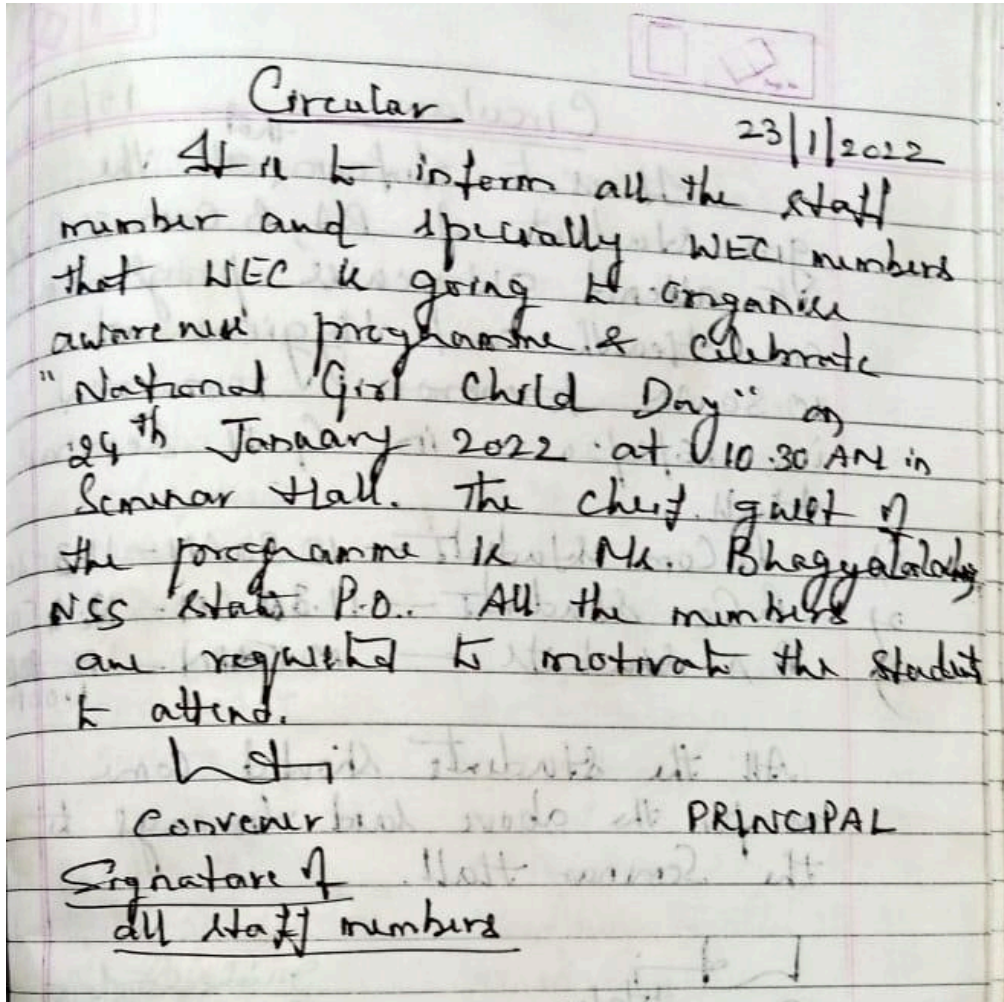 Circular
23/1/2022
It is to inform all the staff
member and specially WEC members
that WEC is going to organise
awareness programme & celebrate
"National Girl Child Day" on
24th January 2022 at 10.30 AM in
Seminar Hall. The chief guest of
the programme is
NSS State P.O.. All the members
are requested to motivate the student
to attend.
Convener PRINCIPAL
Signature of
all staff members